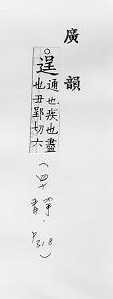 廣韻
○逞通也疾也盡
也丑郢切六
(四
P318)